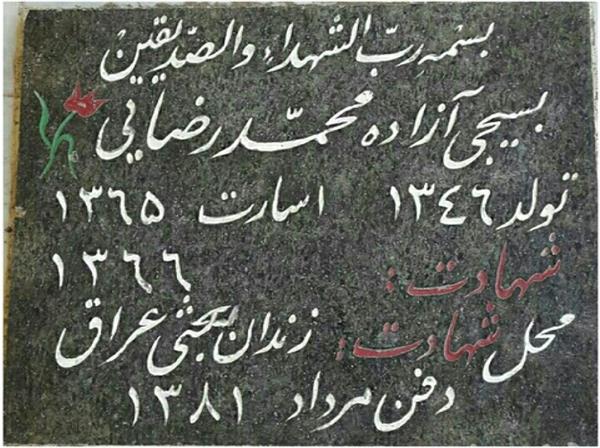 بسمه رب الشهداء والصدیقین
بسیجی آزاده محمد رضایی
تولد ۱۳٤٦ اسارت ۱۳٦۵
شهادت : ۱۳٦٦
محل شهادت : زندان بعثی عراق
دفن مرداد ۱۳۸۱